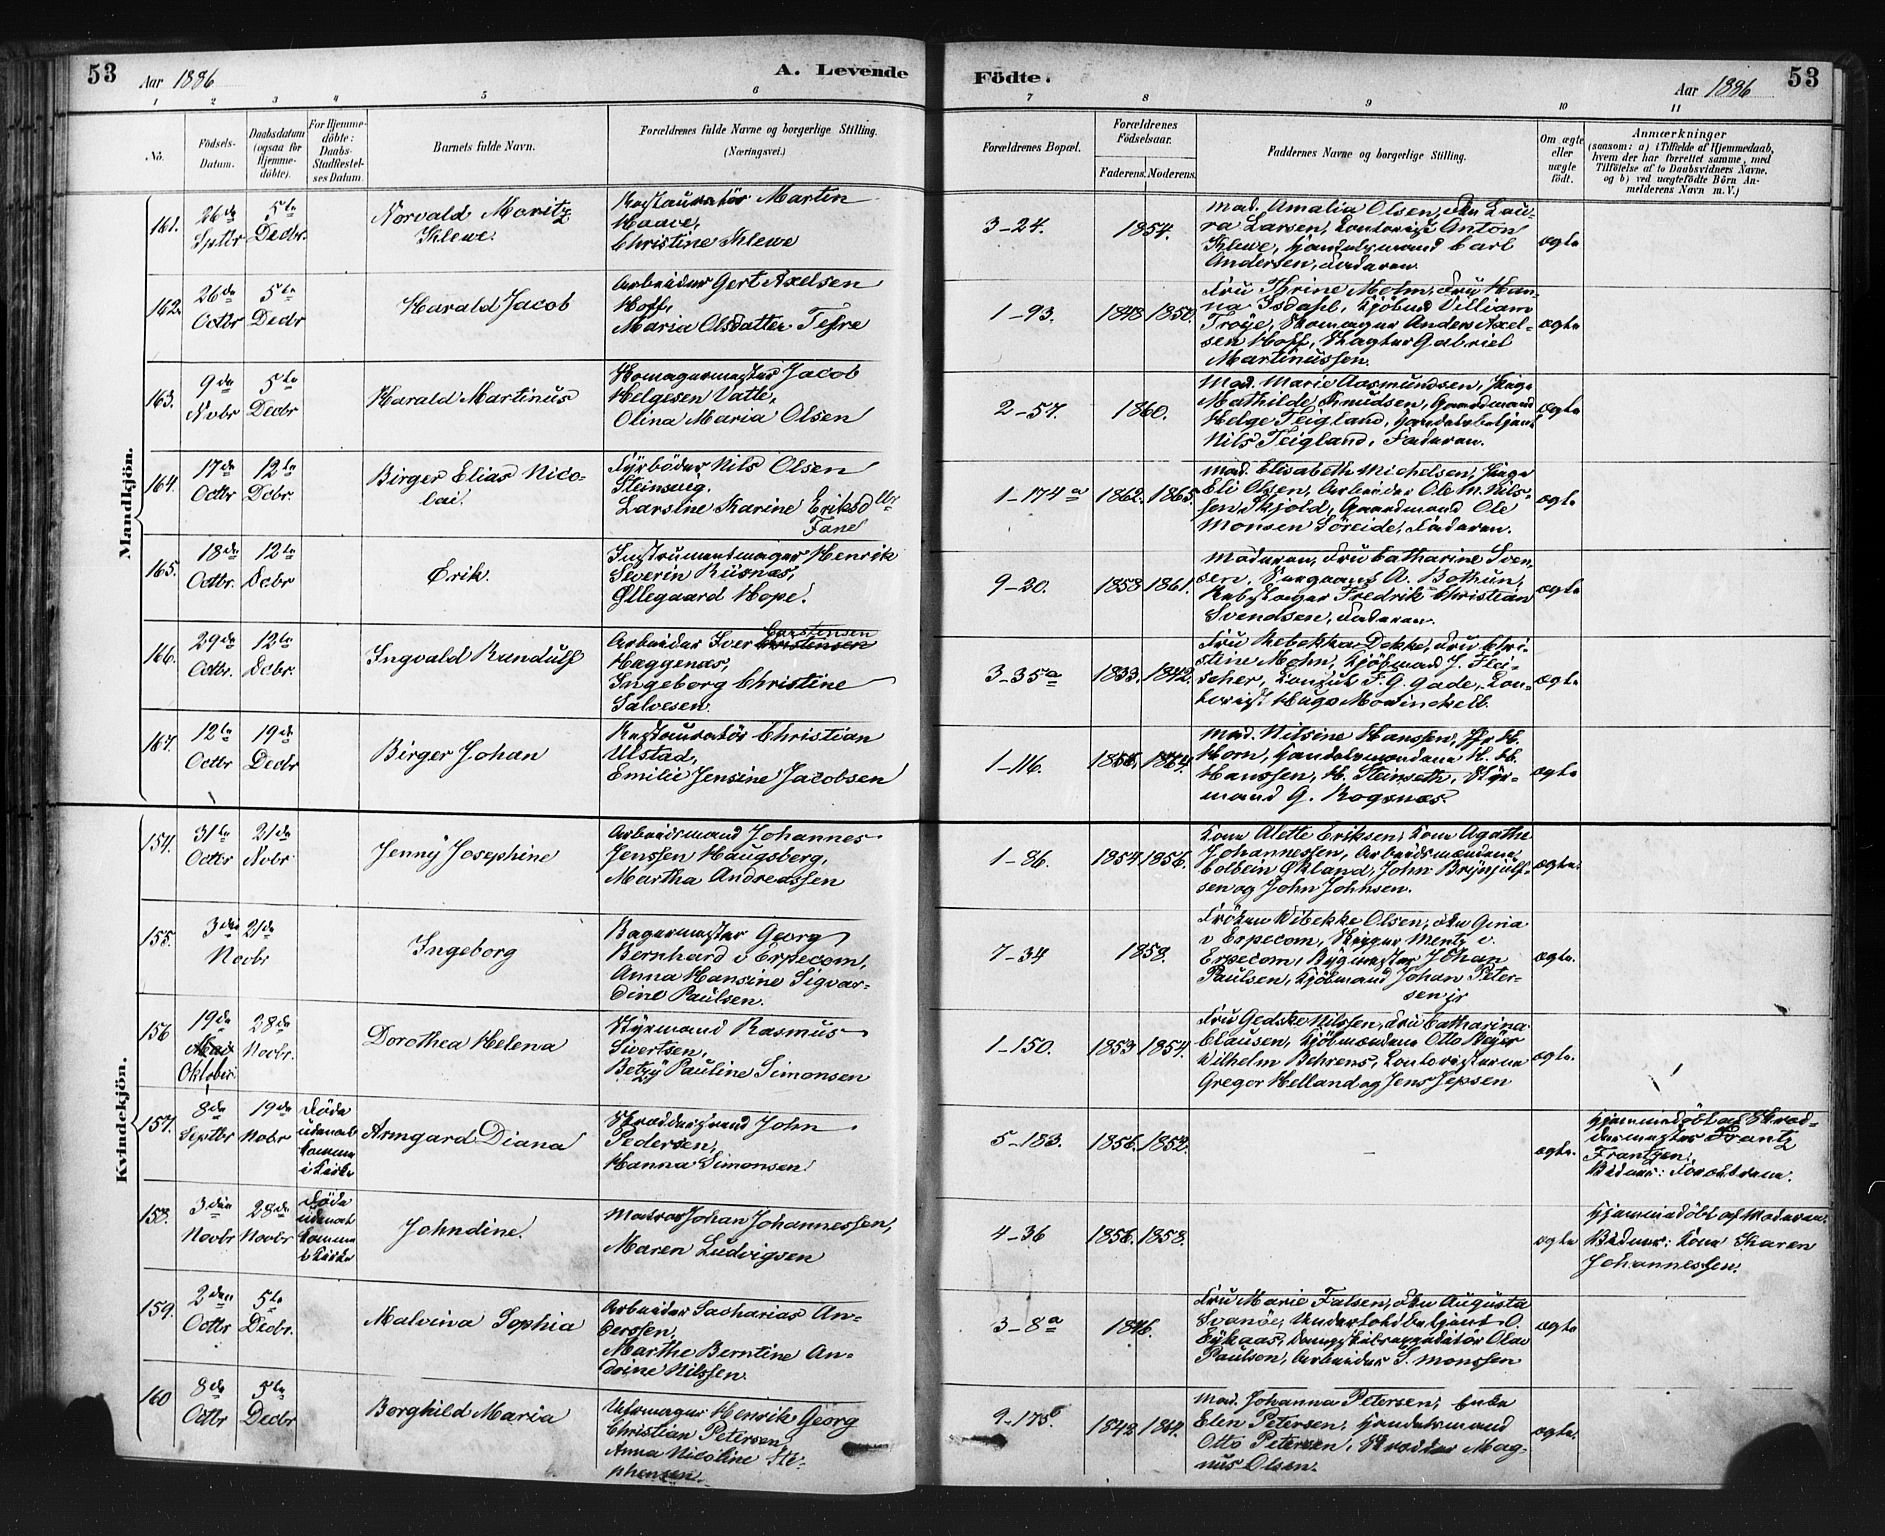 53 Aar 1886 A. Levende Födte. Aar 1886 53
1 2 3 4 5 6 7 8 9 10 11
No.
Födsels-
Datum.
Daabsdatum
(ogsaa for
Hjemme-
döbte).
For Hjemme-
döbte:
Daabs-
Stadfæstel-
ses Datum.
Barnets fulde Navn.
Forældrenes fulde Navne og borgerlige Stilling.
(Næringsvei.)
Forældrenes Bopæl.
Forældrenes
Födselsaar.
Faderens. Moderens.
Faddernes Navne og borgerlige Stilling.
Om ægte
eller
uægte
födt.
Anmærkninger
(saasom: a) i Tilfælde af Hjemmedaab,
hvem der har forrettet samme, med
Tilföielse af to Daabsvidners Navne.
og b) ved uægtefödte Börn An-
melderens Navn m. V.)
Mandkjön.
161.
26de
Sptbr
5te
Decbr.
Norvald Moritz
Klewe.
Restauratör Martin
Haave,
Christine Klewe
3-24.
1854.
Mad. Amalia Olsen, Fru Lau-
ra Larsen, Contorist Anton
Klewe, Handelsmand Carl
Andersen, Faderen.
ægte
162.
26de
Octbr
5te
Decbr
Harald Jacob
Arbeider Gert Axelsen
Hoff,
Maria Olsdatter
1-93.
1848 1850.
Fru Thrine Mohn, Fru Han-
na Isdahl, Kjöbmd Villiam
Troye, Skomager Anders Axel-
sen Hoff, Slagter Gabriel
Martinussen.
ægte
163.
9de
Novbr
5te
Decbr
Harald Martinus
Skomagermester Jacob
Helgesen Vatle,
Olina Maria Olsen
2-57.
1860.
Mad. Marie Aasmundsen, Pige
Mathilde Knudsen, Gaardmand
Helge Teigland, Handelsbetjent
Nils Teigland, Faderen.
ægte
164.
17de
Octbr
12te
Dcbr.
Birger Elias Nico-
lai.
Fyrböder Nils Olsen
Steinseg.
Larsine Karine Eriksdttr
Fane
1-174a
1862. 1865.
Mad. Elisabeth Michelsen, Pige
Eli Olsen, Arbeider Ole M. Nils-
sen Skjold, Gaardmand Ole
Monsen Söreide, Faderen.
ægte
165.
18de
Octbr.
12te
Dcbr
Erik.
Instrumentmager Henrik
Severin Riisnæs,
Øllegaard Hope.
9-20.
1858 1861.
Moderen, Fru Catharine Sven-
sen, Sergeant A. Bothun,
Rebslager Fredrik Christian
Svendsen, Faderen.
ægte
166.
29de
Octbr.
12te
Dcbr.
Ingvald Randulf
Carstensen
Arbeider Iver Christensen
Haggenæs,
Ingeborg Christine
Salvesen.
3-35a
1833. 1842.
Fru Rebekka Dekke, Fru Chri-
stine Mohn, Kjöbmand J. Flei-
scher, Konsul F. G. Gade, Con-
torist Hugo Mowinckell.
ægte
167.
12te
Octbr
19de
Decbr
Birger Johan
Restauratör Christian
Ulstad,
Emilie Jensine Jacobsen
1-116.
1856. 1864.
Mad. Nilsine Hanssen, Hr H.
Horn, Handelsmændene H. H.
Hanssen, H. Steinseth, Styr-
mand G. Rognæs.
ægte
Kvindekjön.
154.
31te
Octbr
21de
Nvbr
Jenny Josephine
Arbeidsmand Johannes
Jenssen Haugsberg,
Martha Andreassen
1-86.
1854 1856.
Kone Alette Eriksen, Kone Agathe
Johannessen, Arbeidsmændene
Colbein Økland, John Brynjulf-
sen og John Johnsen.
ægte.
155.
3die 21de
Novbr
Ingeborg
Bagermester Georg
Bernhard v Erpecom,
Anna Hansine Sigvar-
dine Paulsen.
7-34
1858.
Fröken Wibekke Olsen, Fru Gina
v Erpecom, Skipper Mentz v.
Erpecom, Bygmester Johan
Paulsen, Kjöbmand Johan Peter-
sen jr
ægte.
156
19de
Mai
Oktober.
28de
Novbr.
Dorothea Helena
Styrmand Rasmus
Sivertsen,
Betzy Pauline Simonsen
1-150.
1853 1854.
Fru Gedske Nilssen, Fru Catharina
Clausen, Kjöbmændene Otto Beyer
Wilhelm Behrens, Contoristerne
Gregor Helland og Jens Jepsen
ægte.
157.
8de
Septbr
19de
Nobr
Döde
udenat
komme
i Kirke
Armgard Diana
Skræddersvend John
Pedersen,
Hanna Simonsen
5-183.
1856. 1852.
ægte.
Hjemmedöbt af Skræd-
dermester Frantz
Frantzen.
Vidner: Forældrene.
158.
3die
Novbr
28de
Novbr
Döde
udenat
komme
i Kirke
Johndine.
Matros Johan Johannessen,
Maren Ludvigsen
4-36
1856. 1858.
ægte
Hjemmedöbt af Moderen.
Vidner: Kone Karen
Johannessen.
159.
2den
Octbr
5te
Decbr.
Malvina Sophia
Arbeider Sacharias An-
derssen,
Marthe Berntine An-
drine Nilssen.
3-8a
1846.
Fru Marie Falsen, Fru Augusta
Svanöe, Undertoldbetjent O.
Eykaas, Dampskibsexpeditör Olav
Paulson, Arbeider S. Monssen
ægte
160
8de
Octbr
5te
Decbr
Borghild Maria
Uhrmager Henrik Georg
Christian Petersen
Anna Nicoline Ste-
phensen.
2-175b
1842 1864.
Mad. Johanna Petersen, Enke
Elen Petersen, Handelsmand
Otto Petersen, Skrædder Mag-
nus Olsen.
ægte.